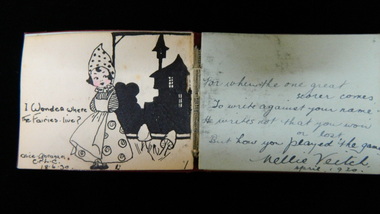 I Wonder where
the Fairies live?
18.6.30.
For when the one great
scorer comes
To write against your name
He writes not that you won
or lost,
But how you played the game
Nellie Veitch
April, 1930.